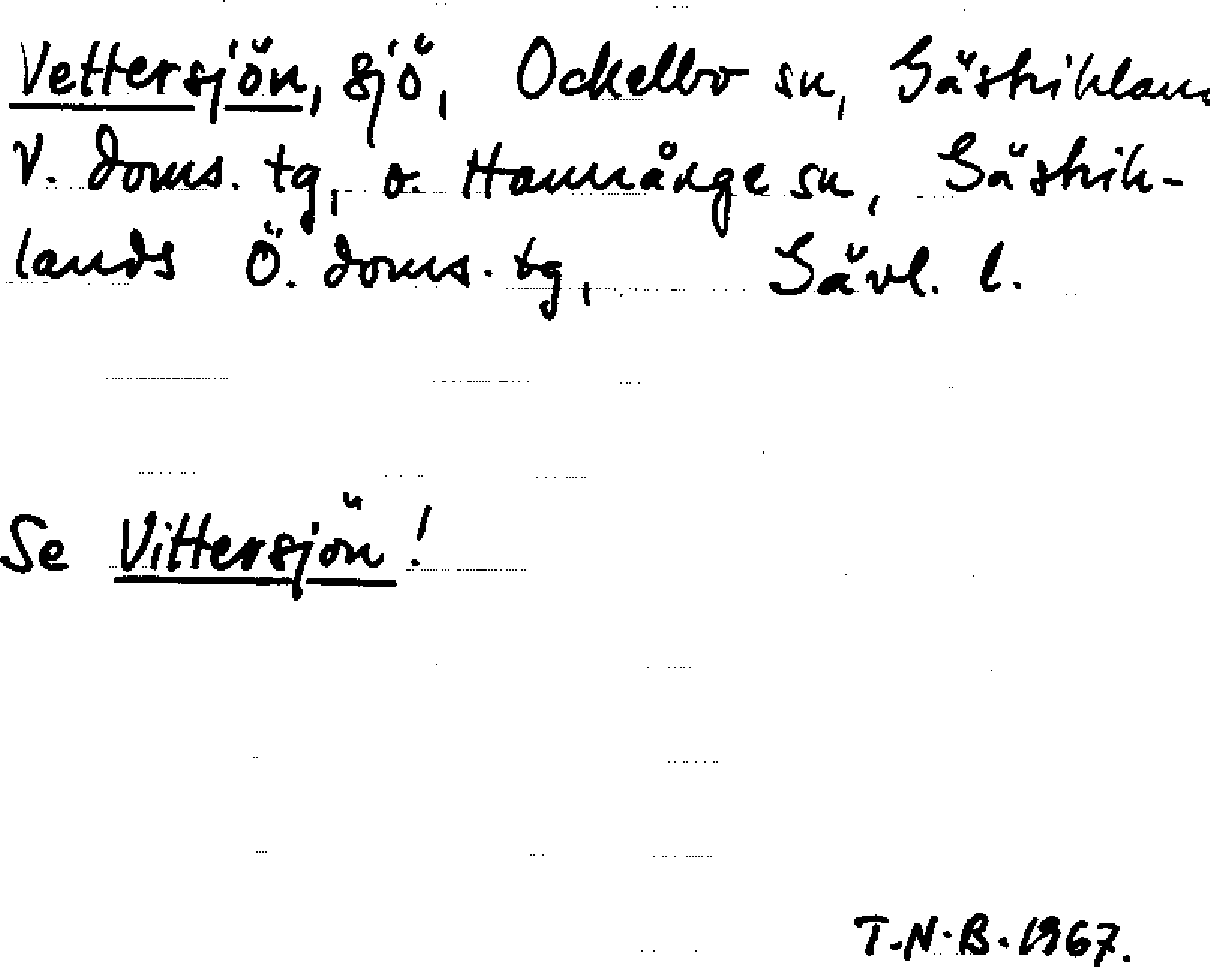 Vettersjön, sjö, Ockelbo sn, Gästriklan
V. doms. tg, o. Hamrånge sn, Gästrik-
lands Ö. doms. tg, Gävl. l.
Se Vittersjön!
T.N.B. 1967.